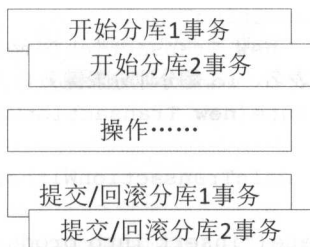 开始分库1事务
开始分库2事务
操作……
提交/回滚分库1事务
提交/回滚分库2事务